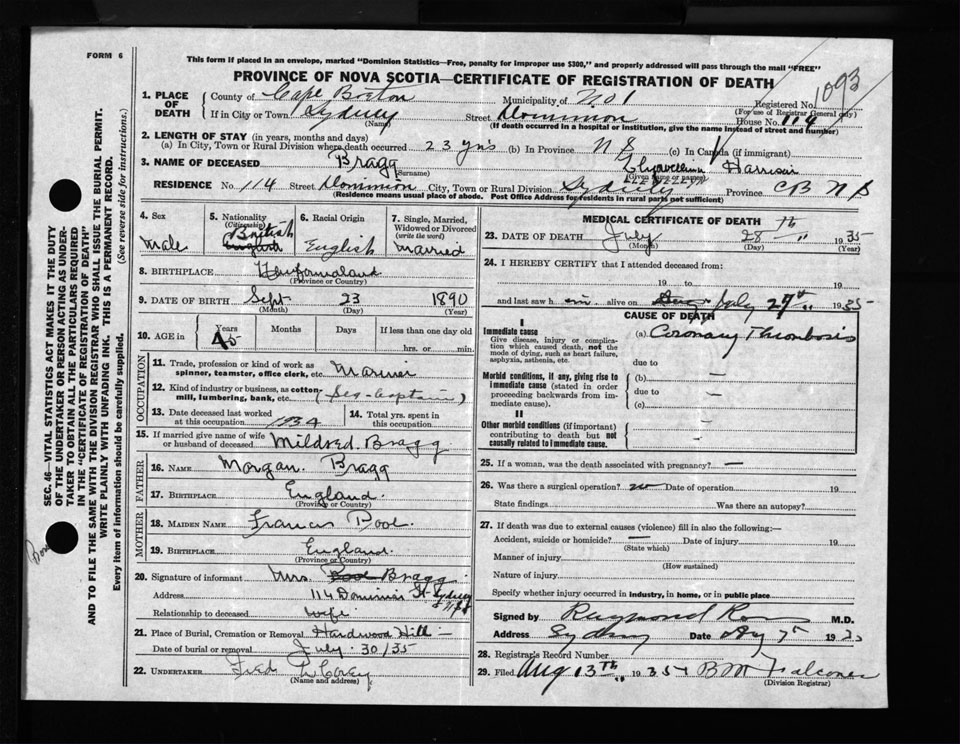 FORM 6
This form if placed in an envelope, marked "Dominion Statistics—Free, penalty for improper use $300," and properly addressed will pass through the mail "FREE"
PROVINCE OF NOVA SCOTIA—CERTIFICATE OF REGISTRATION OF DEATH
1093
1. PLACE OF DEATH
County of Cape Breton Municipality of No 1 Registered No.
(For use of Registrar General only)
If in City or Town Sydney Street Dominion House No. 114
(Name) (If death occurred in a hospital or institution, give the name instead of street and number)
2. LENGTH OF STAY (in years, months and days)
(a) In City, Town or Rural Division where death occurred 23 yrs (b) In Province N S (c) In Canada (if immigrant)
3. NAME OF DECEASED Bragg Harrison
(Surname) (Given name or names)
LLEWELLYN
RESIDENCE No. 114 Street Dominion City, Town or Rural Division Sydney Province C B N S
(Residence means usual place of abode. Post Office Address for residents in rural parts not sufficient)
4. Sex Male
5. Nationality (Citizenship) British
6. Racial Origin English
7. Single, Married, Widowed or Divorced (write the word) Married
8. BIRTHPLACE
(Province or Country)
9. DATE OF BIRTH Sept 23 1890
(Month) (Day) (Year)
10. AGE in Years 45 Months Days If less than one day old
hrs. or min.
OCCUPATION
11. Trade, profession or kind of work as spinner, teamster, office clerk, etc. Mariner
12. Kind of industry or business, as cotton-mill, lumbering, bank, etc. (Sea-Captain)
13. Date deceased last worked at this occupation 1934
14. Total yrs. spent in this occupation
15. If married give name of wife or husband of deceased Mildred Bragg
FATHER
16. NAME Morgan Bragg
17. BIRTHPLACE England.
(Province or Country)
MOTHER
18. MAIDEN NAME Francis Pool
19. BIRTHPLACE England.
(Province or Country)
20. Signature of informant Mrs. Bragg
Address 114 Dominion St Sydney
Relationship to deceased wife
21. Place of Burial, Cremation or Removal Hardwood Hill
Date of burial or removal July 30/35
22. UNDERTAKER Fred
(Name and address)
MEDICAL CERTIFICATE OF DEATH
23. DATE OF DEATH July 28th 1935
(Month) (Day) (Year)
24. I HEREBY CERTIFY that I attended deceased from:
19 to 19
and last saw him alive on July 27th 1935
CAUSE OF DEATH
I
Immediate cause (a) Coronary Thrombosis
Give disease, injury or complication which caused death, not the mode of dying, such as heart failure, asphyxia, asthenia, etc.
due to
Morbid conditions, if any, giving rise to immediate cause (stated in order proceeding backwards from immediate cause).
(b) —
due to —
(c)
II
Other morbid conditions (if important) contributing to death but not causally related to immediate cause.
25. If a woman, was the death associated with pregnancy? —
26. Was there a surgical operation? no Date of operation 19
State findings Was there an autopsy?
27. If death was due to external causes (violence) fill in also the following:—
Accident, suicide or homicide? — Date of injury 19
(State which)
Manner of injury
(How sustained)
Nature of injury
Specify whether injury occurred in industry, in home, or in public place
Signed by Raymond M.D.
Address Sydney Date
28. Registrar's Record Number
29. Filed Aug 13th 1935 Falconer
(Division Registrar)
SEC. 46—VITAL STATISTICS ACT MAKES IT THE DUTY
OF THE UNDERTAKER OR PERSON ACTING AS UNDER-
TAKER TO OBTAIN ALL THE PARTICULARS REQUIRED
IN THE "CERTIFICATE OF REGISTRATION OF DEATH"
AND TO FILE THE SAME WITH THE DIVISION REGISTRAR WHO SHALL ISSUE THE BURIAL PERMIT.
WRITE PLAINLY WITH UNFADING INK. THIS IS A PERMANENT RECORD.
Every item of information should be carefully supplied. (See reverse side for instructions.)